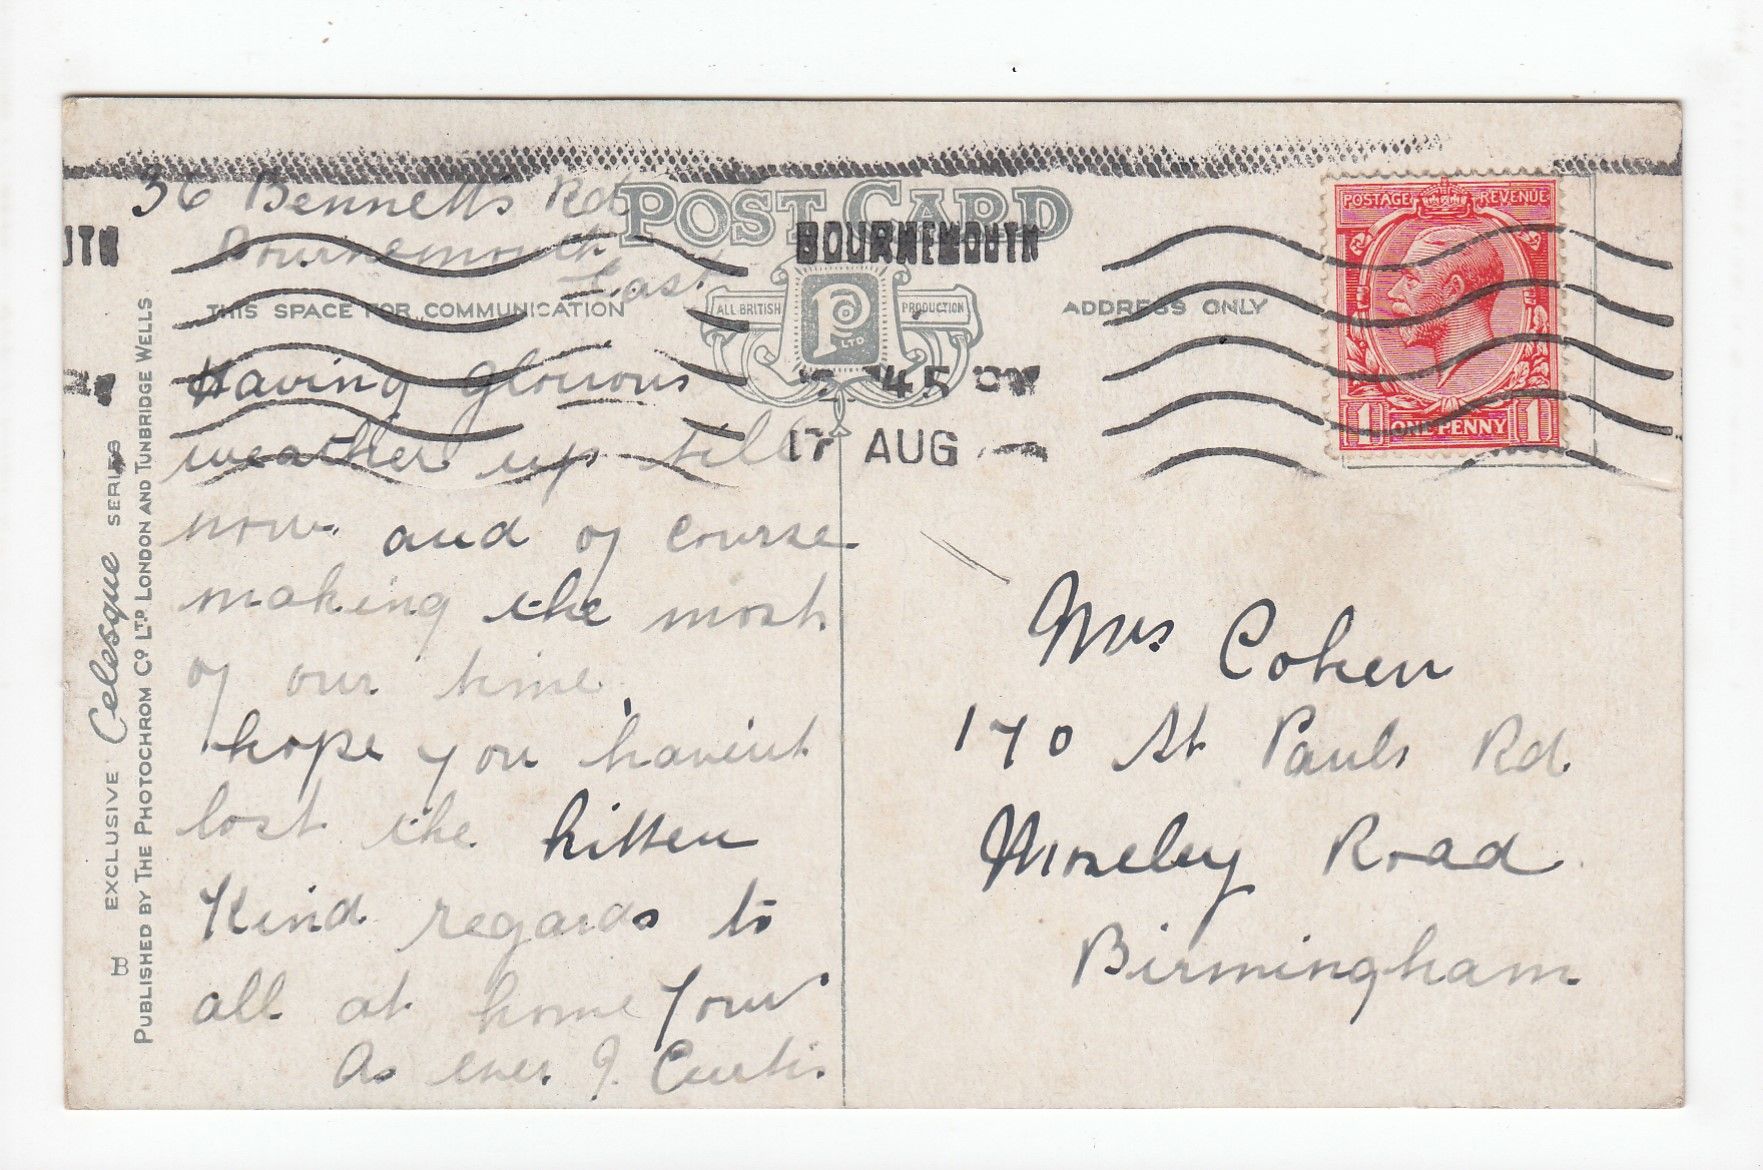 36 Bennetts Rd
Bournemouth
East
POST CARD
BOURNEMOUTH
UTH
THIS SPACE FOR COMMUNICATION
ALL BRITISH PRODUCTION
P LTD
ADDRESS ONLY
POSTAGE REVENUE
1 ONE PENNY 1
45 PM
17 AUG
Having glorious
weather up till
now and of course
making the most
of our time,
hope you havent
lost the kitten
Kind regards to
all at home Your
As ever J. Curtis.
Mrs Cohen
170 St Pauls Rd.
Moseley Road
Birmingham
B EXCLUSIVE Celesque SERIES
PUBLISHED BY THE PHOTOCHROM CO LTD LONDON AND TUNBRIDGE WELLS